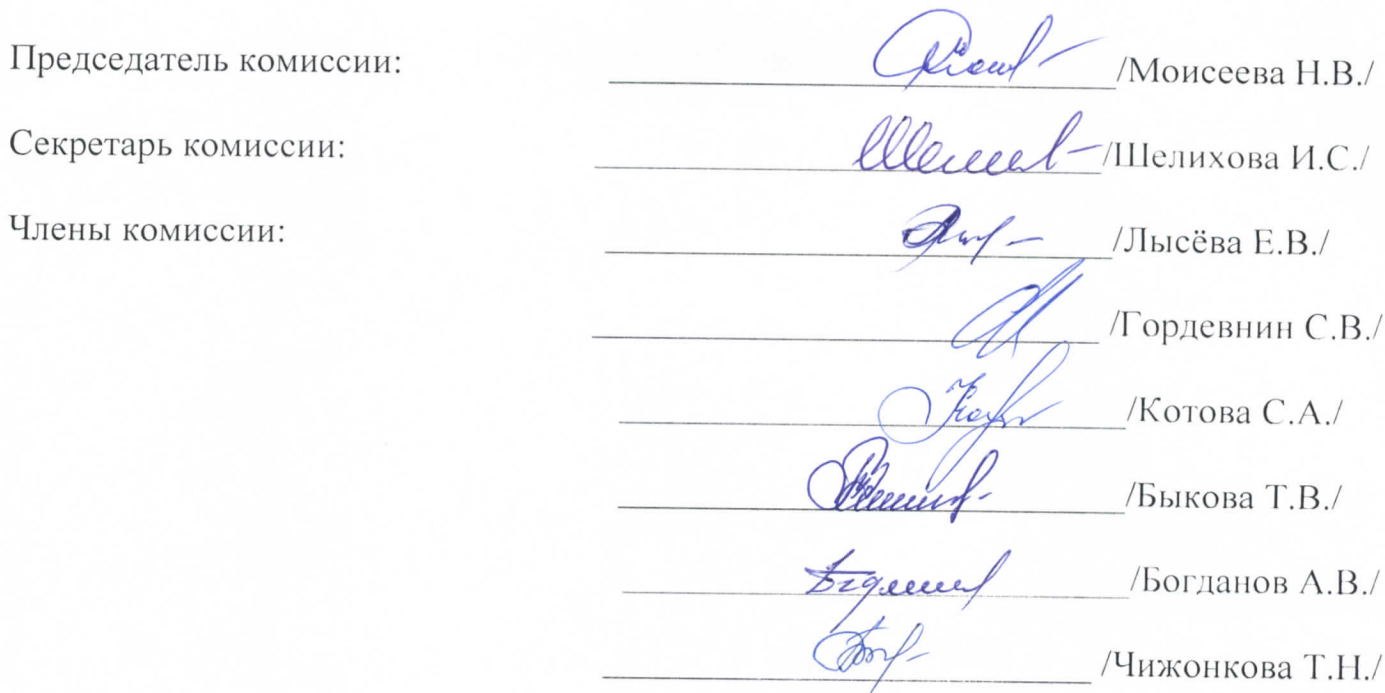 Председатель комиссии: /Моисеева Н.В./
Секретарь комиссии: /Шелихова И.С./
Члены комиссии: /Лысёва Е.В./
/Гордевнин С.В./
/Котова С.А./
/Быкова Т.В./
/Богданов А.В./
/Чижонкова Т.Н./